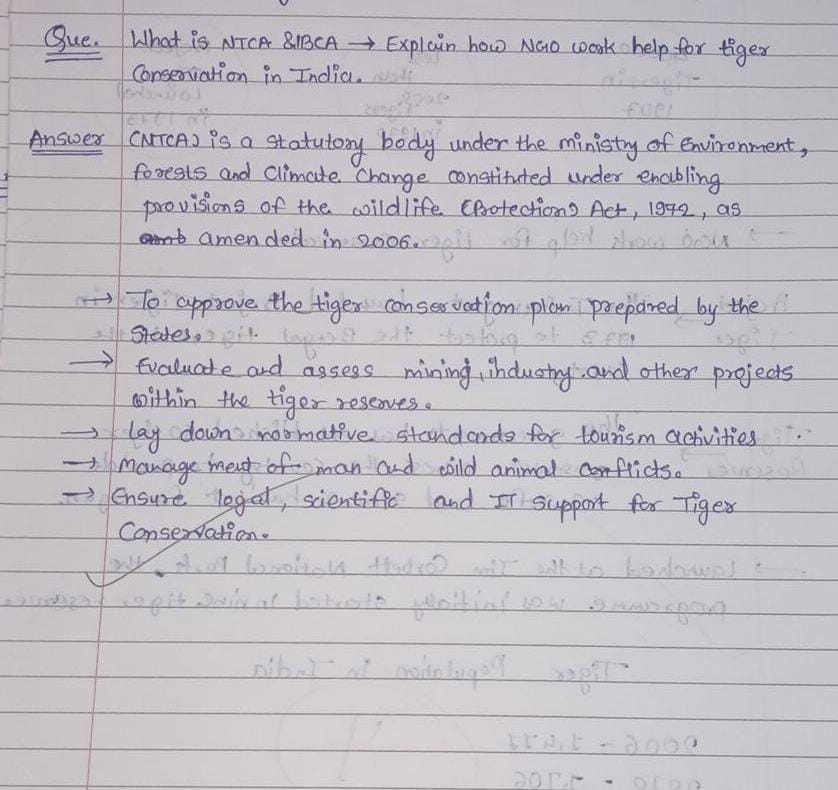 Que. What is NTCA & IBCA → Explain how NGO work help for tiger
Conservation in India.
Answer (NTCA) is a statutory body under the ministry of Environment,
forests and Climate Change constituted under enabling
provisions of the wildlife (Protection) Act, 1972, as
amended in 2006.
→ To approve the tiger conservation plan prepared by the
States.
→ Evaluate and assess mining, industry and other projects
within the tiger reserves.
→ Lay down normative standards for tourism activities.
→ Management of man and wild animal conflicts.
→ Ensure legal, scientific and IT support for Tiger
Conservation.